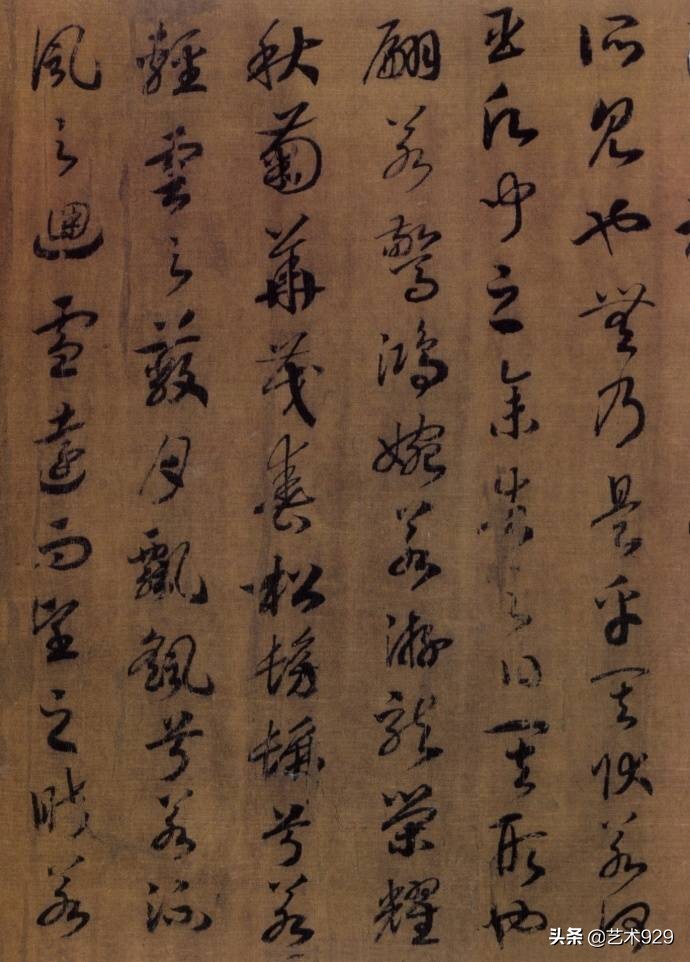 所見也無乃是乎其狀若何
臣願聞之余告之曰其形也
翩若驚鴻婉若游龍榮耀
秋菊華茂春松髣髴兮若
輕雲之蔽月飄飖兮若流
風之迴雪遠而望之皎若
头条 @艺术929